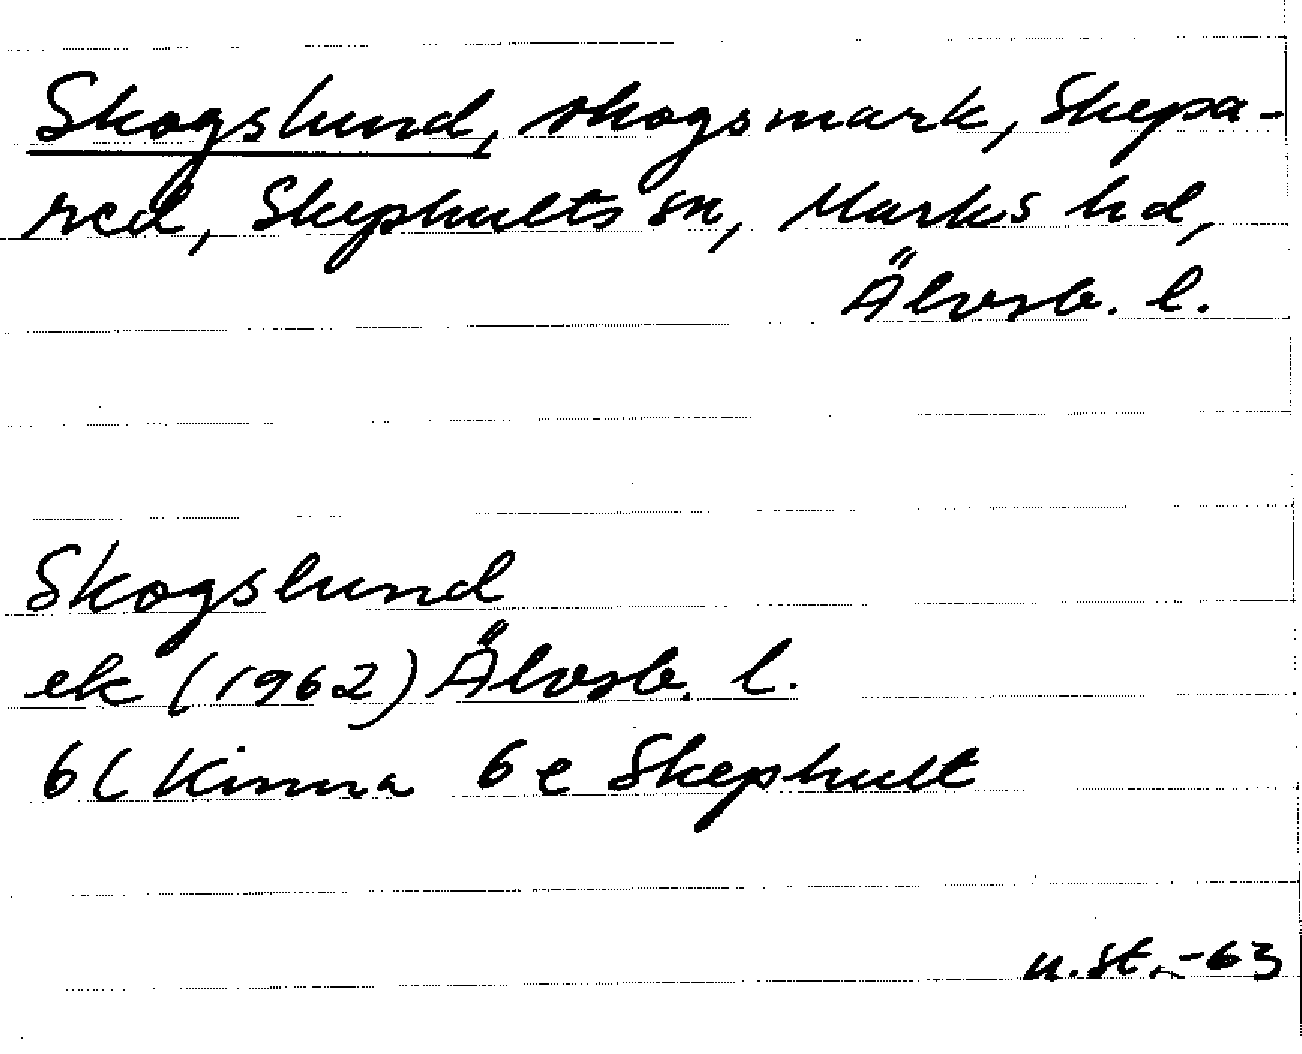 Skogslund, skogsmark, Skepa-
red, Skephults sn, Marks hd,
Älvsb. l.
Skogslund
ek (1962) Älvsb. l.
6C Kinna 6e Skephult
u.st.-63